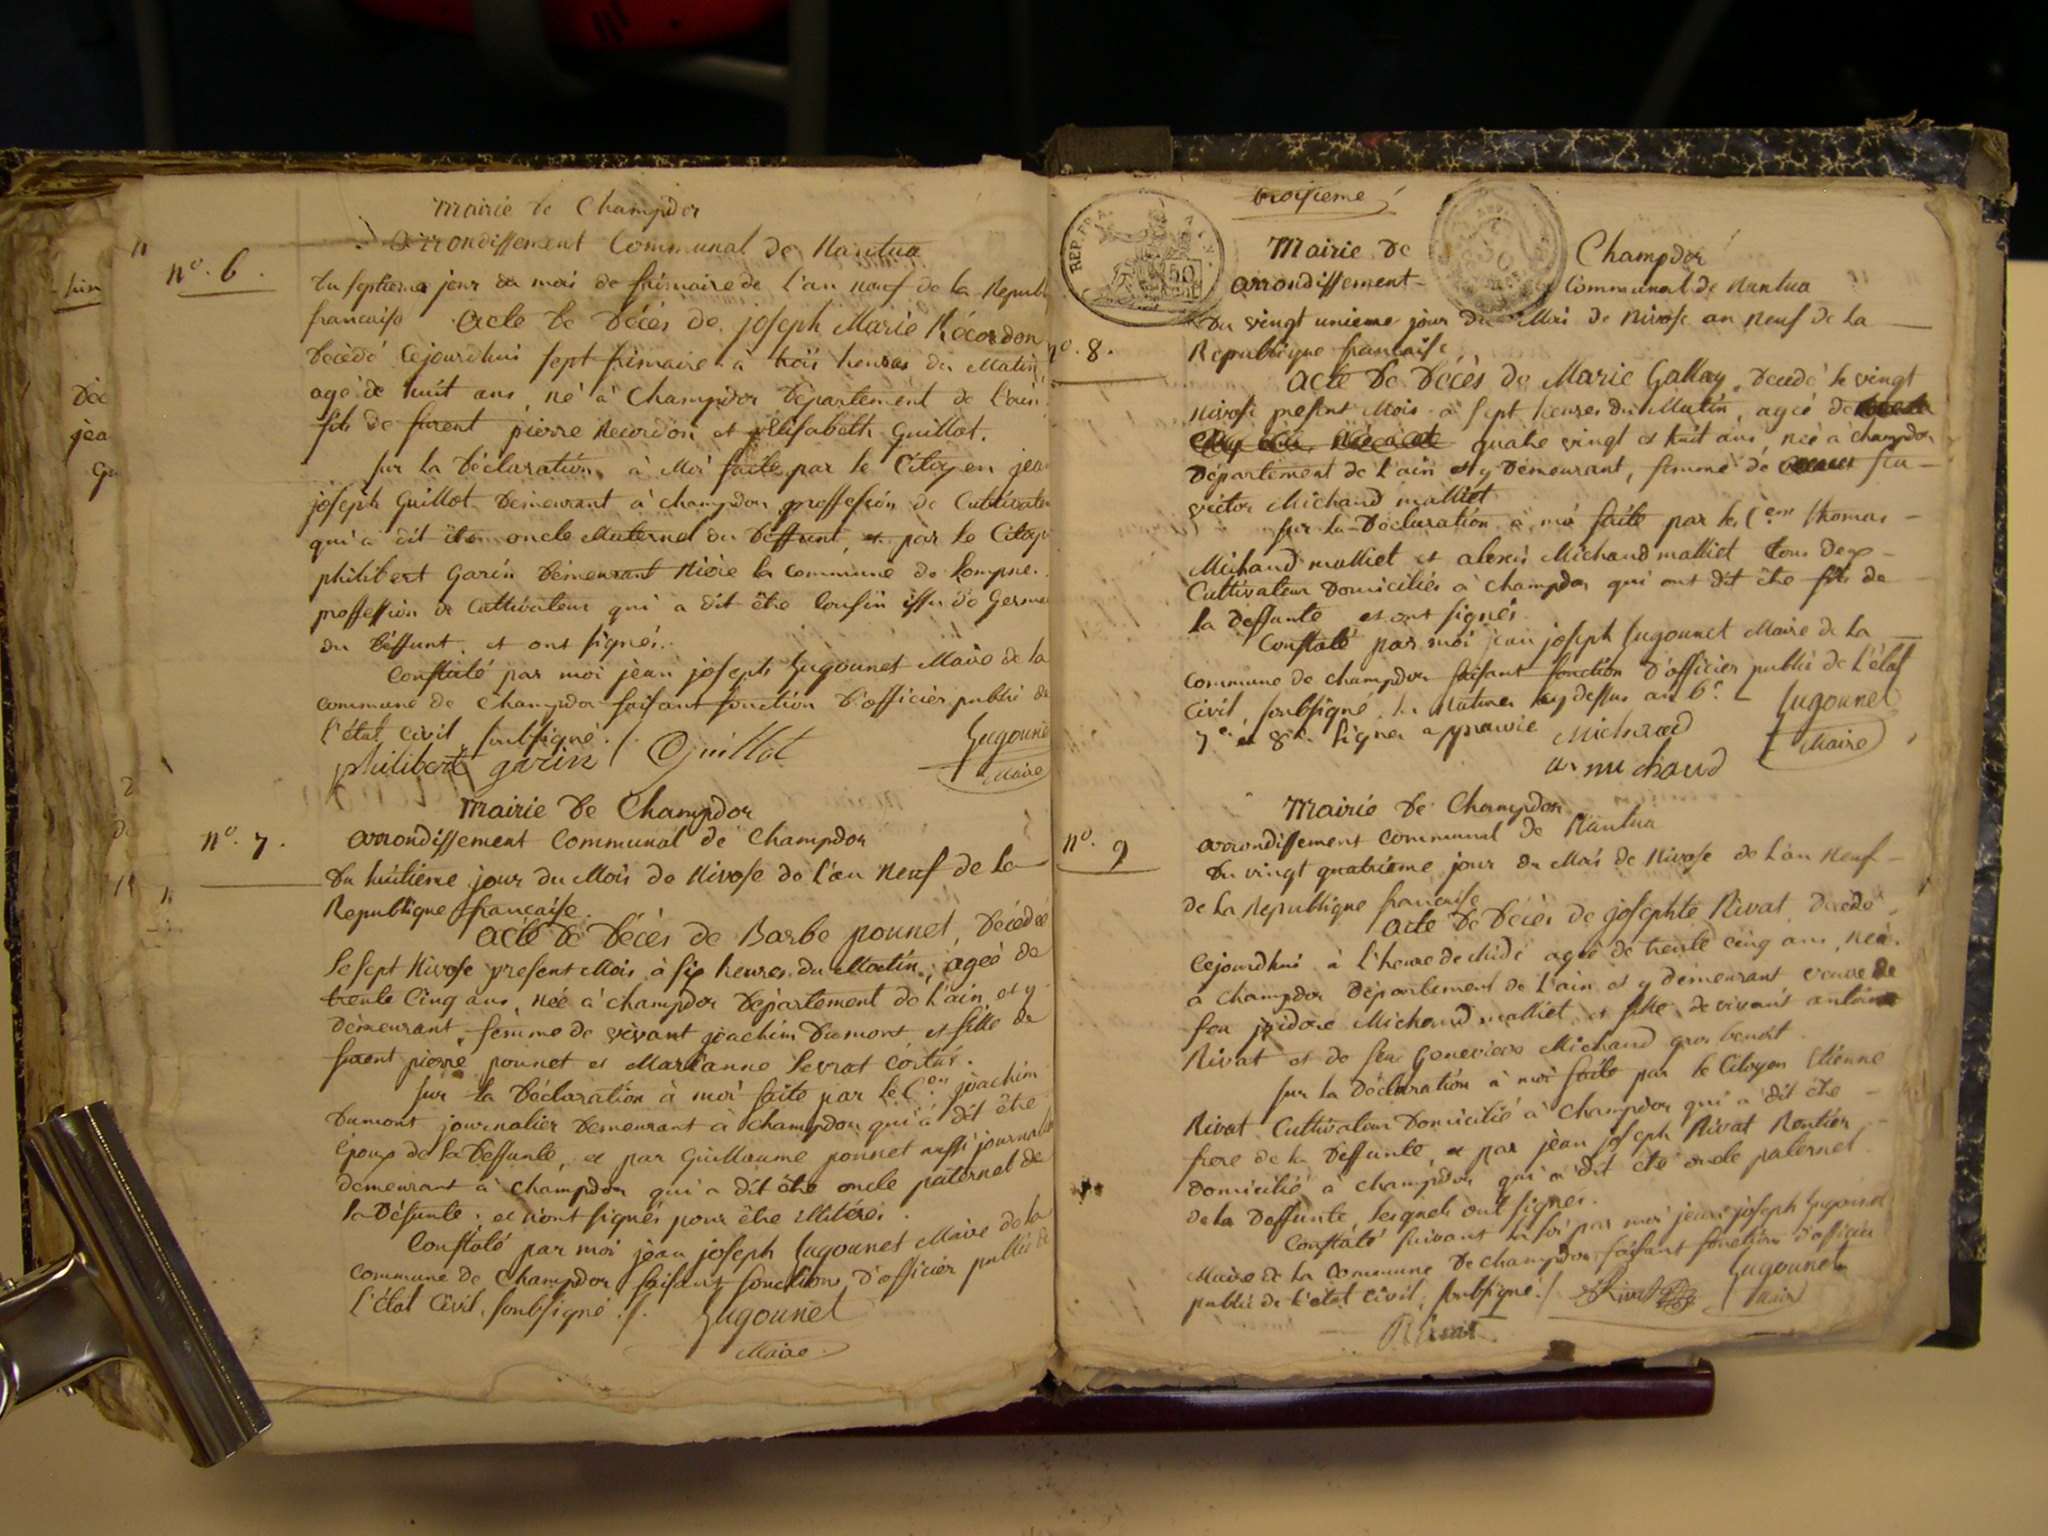 Mairie de Champdor
arrondissement Communal de Nantua
n°. 6.
Du septieme jour du mois de frimaire de l'an neuf de la Republ
francaise Acte de Décès de joseph Marie Récordon
Décédé Cejourdhui sept frimaire à trois heures du Matin,
agé de huit ans, né à Champdor Département de l'ain,
fils de furent pierre Recordon et Elisabeth Guillot.
sur la Déclaration à Moi faite par le Citoyen jean
joseph Guillot Demeurant à champdor proffession de Cultivateur
qui a dit être oncle Maternel du Déffunt, et par le Citoy
philibert Garin Démeurant Rière la commune de Lompne.
proffession de Cultivateur qui a dit être Cousin issu de Germe
du Déffunt. et ont signés.
Constaté par moi jèan joseph Jugounet Maire de la
commune de Champdor faisant fonction D'officier public de
l'état civil, soubsigné./.
philibert garin Guillot Jugounet
Maire
Mairie de Champdor
n°. 7.
arrondissement Communal de Champdor
Du huitieme jour du Mois de Nivose de l'an Neuf de la
Republique francaise.
Acte de Décès de Barbe ponnet, Décédée
le sept Nivose present Mois, à six heures du Matin, ageé de
trente Cinq ans, née à champdor Département de l'ain et y
demeurant, femme de vivant joachim Dumont et fille de
furent pierre ponnet et Marianne Sevrat Cortus.
sur la Déclaration à moi faite par le C.en joachim
Dumont journalier Demeurant à Champdor qui a dit être
Epoux de la Deffunte, et par Guillaume ponnet aussi journalier
demeurant à Champdor qui a dit être oncle paternel de
la Défunte; et n'ont signés pour être illitéréi.
Constaté par moi jean joseph Jugounet Maire de la
commune de Champdor faisant fonction, d'officier public de
l'état Civil, soubsigné./.
Jugounet
Maire
troisieme
REP. FRA.
50
Mairie de Champdor
arrondissement Communal de Nantua
Du vingt unieme jour du Mois de Nivose an Neuf de la
n°. 8.
Republique francaise
Acte de Décès de Marie Gallay, Décedé le vingt
Nivose present Mois à sept heures du Matin, ageé de
quatre vingt et huit ans, née à champdor
Département de l'ain et y Demeurant, femme de feu
victor Michaud malliet
sur la Déclaration à moi faite par les C.ens thomas
Michaud malliet et alexis Michaud malliet tous deux
Cultivateur Domiciliés à champdor qui ont dit être fils de
la deffunte et ont signés
Constaté par moi jean joseph Jugounet Maire de la
commune de champdor faisant fonction d'officier public de l'état
Civil, soubsigné, la Rature cy dessus aux 6.e
7.e et 8.e lignes approuvée Michaud Jugounet
Maire
ax michaud
Mairie de Champdor
n°. 9
arrondissement communal de Nantua
Du vingt quatrieme jour du Mois de Nivose de l'an Neuf
de la Republique francaise
Acte de Décès de josephte Rivat, Decédé
Cejourdhui à l'heure de Midi ageé de trente cinq ans, née
à champdor Département de l'ain et y demeurant veuve de
feu jsidore Michaud malliet, et fille de vivant antoine
Rivat et de feu Genevieve Michaud gros benoit.
sur la Déclaration à moi faite par le Citoyen Etienne
Rivat Cultivateur Domicilié à Champdor qui a dit être
frere de la Deffunte, et par jèan joseph Rivat Rentier
Domicilié à champdor qui a dit être oncle paternel
de la Deffunte, lesquels ont signés.
Constaté suivant la loi par moi jean joseph Jugounet
Maire de la commune de champdor faisant fonction d'officier
public de l'état civil, soubsigné./. Rivat Jugounet
Maire
Rivat